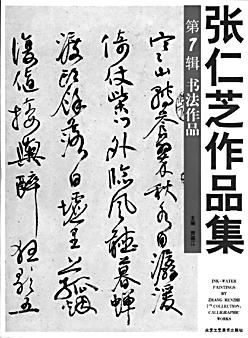 张仁芝作品集
第7辑 书法作品
寒山转苍翠秋水日潺湲
倚仗柴门外临风听暮蝉
渡头馀落日墟里上孤烟
复值接舆醉狂歌五
INK-WATER
PAINTINGS BY
ZHANG RENZHI
7TH COLLECTION:
CALLIGRAPHIC
WORKS